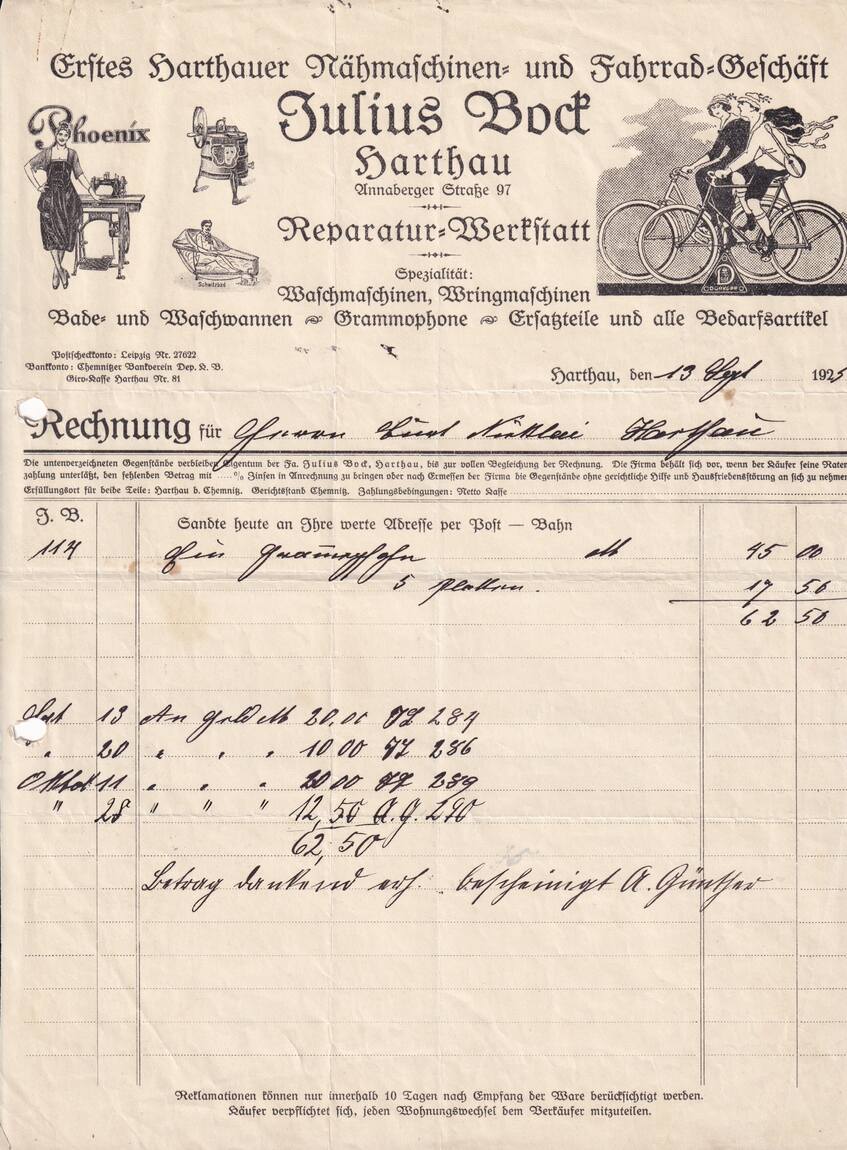 Erstes Harthauer Nähmaschinen- und Fahrrad-Geschäft
Phoenix
Julius Bock
Harthau
Annaberger Straße 97
Reparatur-Werkstatt
Schwitzbad
DÜRKOPP
Spezialität:
Waschmaschinen, Wringmaschinen
Bade- und Waschwannen Grammophone Ersatzteile und alle Bedarfsartikel
Postscheckkonto: Leipzig Nr. 27622
Bankkonto: Chemnitzer Bankverein Dep. K. B.
Giro-Kasse Harthau Nr. 81
Harthau, den 13 Sept 1925
Rechnung für Herrn Curt Harthau
Die unterverzeichneten Gegenstände verbleiben Eigentum der Fa. Julius Bock, Harthau, bis zur vollen Begleichung der Rechnung. Die Firma behält sich vor, wenn der Käufer seine Raten-
zahlung unterläßt, den fehlenden Betrag mit ..... % Zinsen in Anrechnung zu bringen oder nach Ermessen der Firma die Gegenstände ohne gerichtliche Hilfe und Hausfriedensstörung an sich zu nehmen
Erfüllungsort für beide Teile: Harthau b. Chemnitz. Gerichtsstand Chemnitz. Zahlungsbedingungen: Netto Kasse
J. B.
Sandte heute an Ihre werte Adresse per Post — Bahn
114 Ein Grammophon M 45 00
5 Platten. 17 50
62 50
Sept 13 An Geld M 20,00 284
" 20 " " " 10 00 286
Oktob 11 " " " 20 00 289
" 28 " " " 12,50 A.G. 290
62,50
Betrag dankend erh. bescheinigt A. Günther
Reklamationen können nur innerhalb 10 Tagen nach Empfang der Ware berücksichtigt werden.
Käufer verpflichtet sich, jeden Wohnungswechsel dem Verkäufer mitzuteilen.